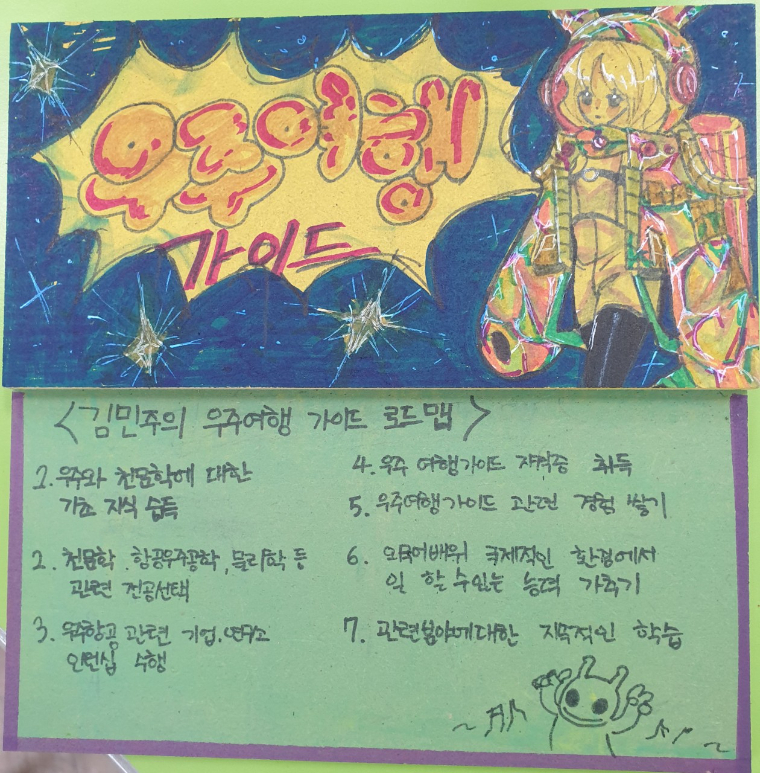 우주여행
가이드
<김민주의 우주여행 가이드 로드맵>
1. 우주와 천문학에 대한
기초 지식 습득
2. 천문학, 항공우주공학, 물리학 등
관련 전공선택
3. 우주항공 관련 기업, 연구소
인턴십 수행
4. 우주 여행가이드 자격증 취득
5. 우주여행가이드 관련 경험 쌓기
6. 외국어배워 국제적인 환경에서
일 할 수있는 능력 가추기
7. 관련분야에대한 지속적인 학습